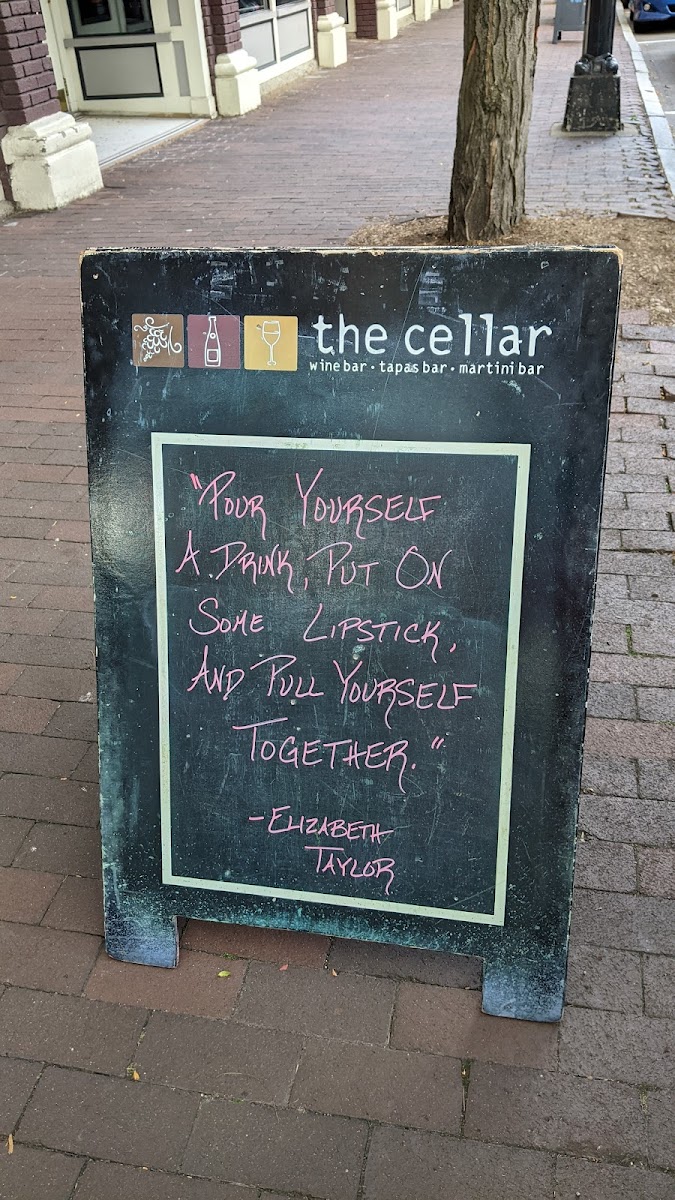 the cellar
wine bar · tapas bar · martini bar
"POUR YOURSELF
A DRINK, PUT ON
SOME LIPSTICK,
AND PULL YOURSELF
TOGETHER."
- ELIZABETH
TAYLOR